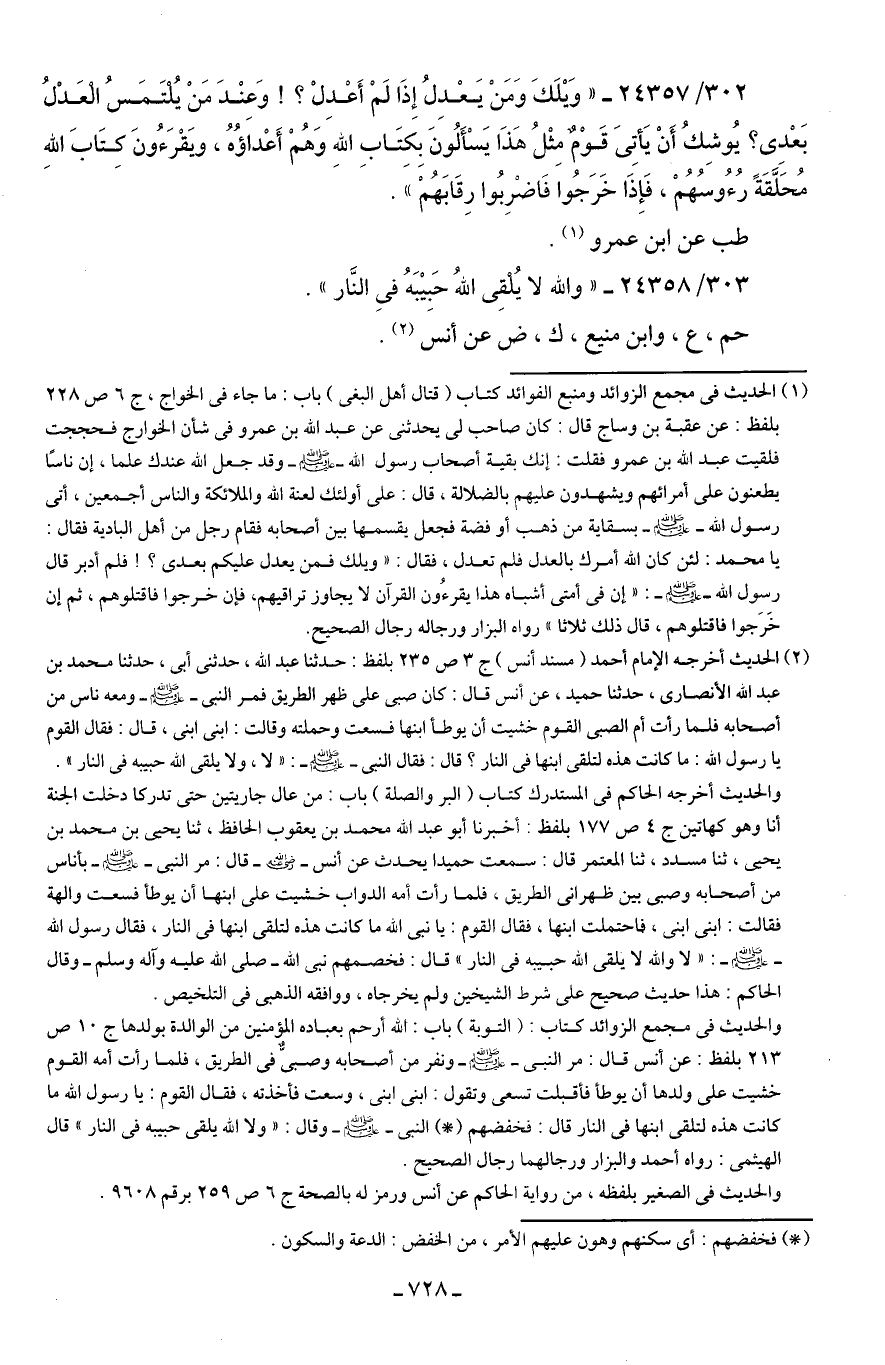 ٣٠٢/ ٢٤٣٥٧ ـ « وَيْلَكَ وَمَنْ يَـعْـدِلُ إِذَا لَمْ أَعْـدِلْ ؟ ! وَعِنْـدَ مَنْ يُلْتَـمَـسُ الْعَـدْلُ
بَعْدِى؟ يُوشِكُ أَنْ يَأتِىَ قَـوْمٌ مِثْلُ هَذَا يَسْأَلُونَ بِكِتَـابِ اللهِ وَهُمْ أَعْداؤُهُ ، وَيَقْرَءُونَ كِـتَابَ اللهِ
مُحَلَّقَةً رُءُوسُهُمْ ، فَإِذَا خَرَجُوا فَاضْرِبُوا رِقَابَهُمْ » .
طب عن ابن عمرو (١) .
٣٠٣/ ٢٤٣٥٨ ـ « والله لا يُلْقِى اللهُ حَبِيْبَهُ فِى النَّار » .
حم ، ع ، وابن منيع ، ك ، ض عن أنس (٢) .
(١) الحديث فى مجمع الزوائد ومنبع الفوائد كتـاب ( قتال أهل البغى ) باب : ما جاء فى الخواج ، ج ٦ ص ٢٢٨
بلفظ : عن عقبة بن وساج قال : كان صاحب لى يحدثنى عن عـبد الله بن عمرو فى شأن الخوارج فـحججت
فلقيت عبـد الله بن عمرو فقلت : إنك بقيـة أصحاب رسول الله ـ ﷺ ـ وقد جـعل الله عندك علما ، إن ناسًا
يطعنون على أمرائهم ويشهـدون عليهم بالضلالة ، قال : على أولئك لعنة الله والملائكة والناس أجـمعين ، أتى
رسـول الله ـ ﷺ ـ بسـقاية من ذهب أو فضة فجعل يقسمـها بين أصحابه فقام رجل من أهل البادية فقال :
يا محـمد : لئن كان الله أمـرك بالعدل فلم تعـدل ، فقال : « ويلك فـمن يعدل عليكم بعـدى ؟ ! فلم أدبر قال
رسول الله ـ ﷺ ـ : « إن فى أمتى أشبـاه هذا يقرءُون القرآن لا يجاوز تراقيهم، فإن خـرجوا فاقتلوهم ، ثم إن
خَرَجوا فاقتلوهم ، قال ذلك ثلاثا » رواه البزار ورجاله رجال الصحيح.
(٢) الحديث أخرجـه الإمام أحمد ( مسند أنس ) ج ٣ ص ٢٣٥ بلفظ : حـدثنا عبد الله ، حدثنى أبى ، حدثنا محـمد بن
عبد الله الأنصـارى ، حدثنا حميد ، عن أنس قـال : كان صبى على ظهر الطريق فمـر النبى ـ ﷺ ـ ومعه ناس من
أصـحابه فلـما رأت أم الصبى القـوم خشيت أن يوطـأ ابنها فـسعت وحملته وقالت : ابنى ابنى ، قـال : فقال القوم
يا رسول الله : ما كانت هذه لتلقى ابنها فى النار ؟ قال : فقال النبى ـ ﷺ ـ : « لا ، ولا يلقى الله حبيبه فى النار » .
والحديث أخرجه الحاكم فى المستدرك كتـاب ( البر والصلة ) باب : من عال جاريتين حتى تدركا دخلت الجنة
أنا وهو كهاتين ج ٤ ص ١٧٧ بلفظ : أخـبرنا أبو عبد الله محمـد بن يعقوب الحافظ ، ثنا يحيى بن مـحمد بن
يحيى ، ثنا مسدد ، ثنا المعتمر قال : سـمعت حميدا يحدث عن أنس ـ رضي الله عنه ـ قال : مر النبى ـ ﷺ ـ بأناس
من أصـحابه وصبى بين ظـهرانى الطريق ، فلمـا رأت أمه الدواب خـشيت على ابنهـا أن يوطأ فسعت والهة
فقالت : ابنى ابنى ، فاحتملت ابنها ، فقال القوم : يا نبى الله ما كانت هذه لتلقى ابنها فى النار ، فقال رسول الله
ـ ﷺ ـ : « لا والله لا يلقى الله حبـيبه فى النار » قـال : فخصـمهم نبى الله ـ صلى الله عليـه وآله وسلم ـ وقال
الحاكم : هذا حديث صحيح على شرط الشيخين ولم يخرجاه ، ووافقه الذهبى فى التلخيص .
والحديث فى مـجمع الزوائد كـتاب : ( التـوبة ) باب : الله أرحم بعباده المؤمنين من الوالدة بولدها ج ١٠ ص
٢١٣ بلفظ : عن أنس قـال : مر النبـى ـ ﷺ ـ ونفر من أصـحابه وصبـىٌّ فى الطريق ، فلمـا رأت أمه القـوم
خشيت على ولدها أن يوطأ فأقبـلت تسعى وتقول : ابنى ابنى ، وسعت فأخذته ، فقـال القوم : يا رسول الله ما
كانت هذه لتلقى ابنها فى النار قال : فخفضهم (*) النبى ـ ﷺ ـ وقال : « ولا الله يلقى حبيبه فى النار » قال
الهيثمى : رواه أحمد والبزار ورجالهما رجال الصحيح .
والحديث فى الصغير بلفظه ، من رواية الحاكم عن أنس ورمز له بالصحة ج ٦ ص ٢٥٩ برقم ٩٦٠٨ .
(*) فخفضهم : أى سكنهم وهون عليهم الأمر ، من الخفض : الدعة والسكون .
ـ ٧٢٨ ـ